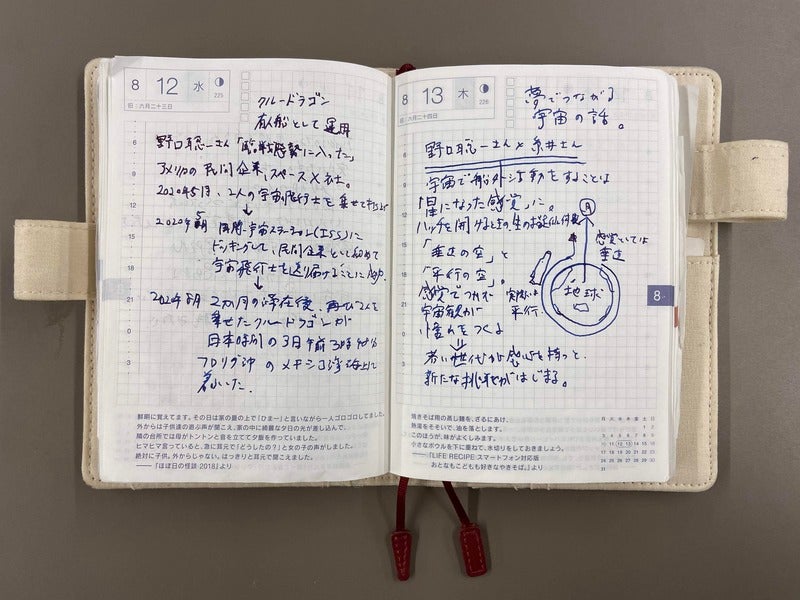 8 12 水
225
旧:六月二十三日
クルードラゴン
有人船として運用
野口聡一さん「臨戦態勢に入った」
アメリカの民間企業、スペースX社。
2020年5月、2人の宇宙飛行士を乗せて
2020年5月 国際宇宙ステーション(ISS)に
ドッキングして、民間企業として初めて
宇宙飛行士を送り届けることに成功。
2020年8月 2カ月の滞在後、再び2人を
乗せたクルードラゴンが
日本時間の3日午前3時48分
フロリダ沖のメキシコ湾海上に
着いた。
鮮明に覚えてます。その日は家の畳の上で「ひまー」と言いながら一人ゴロゴロしてました。
外からは子供達の遊ぶ声が聞こえ、家の中に綺麗な夕日の光が差し込んで、
隣の台所では母がトントンと音を立てて夕飯を作っていました。
ヒマヒマ言っていると、急に耳元で「どうしたの?」と女の子の声がしました。
絶対に子供。外からじゃない、はっきりと耳元で聞こえました。
──『ほぼ日の怪談 2018』より
8 13 木
226
旧:六月二十四日
夢でつながる
宇宙の話。
野口聡一さん×糸井さん
宇宙で船外活動をすることは
「星になった感覚」に。
ハッチを開けるときの生の
「垂直の空」と
「平行の空」。
感覚でつれた
宇宙観が
憧れをつくる
若い世代が感心を持つと、
新たな挑戦がはじまる。
感覚としては
垂直
実際は
平行
地球
8
焼きそば用の蒸し麺を、ざるにあけ、
熱湯をそそいで、油を落とします。
このほうが、味がよくしみます。
小さなボウルを下に重ねて、水切りをしておきましょう。
──『LIFE RECIPE スマートフォン対応版
おとなもこどもも好きなやきそば。』より
月 火 水 木 金 土 日
1 2
3 4 5 6 7 8 9
10 11 12 13 14 15 16
17 18 19 20 21 22 23
24 25 26 27 28 29 30
31